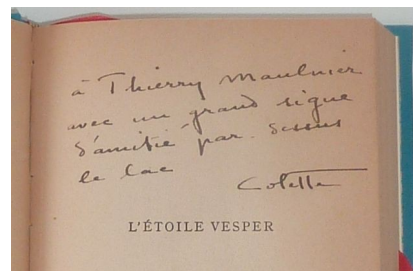 à Thierry Maulnier
avec un grand signe
d'amitié par-dessus
le lac
Colette
L'ÉTOILE VESPER